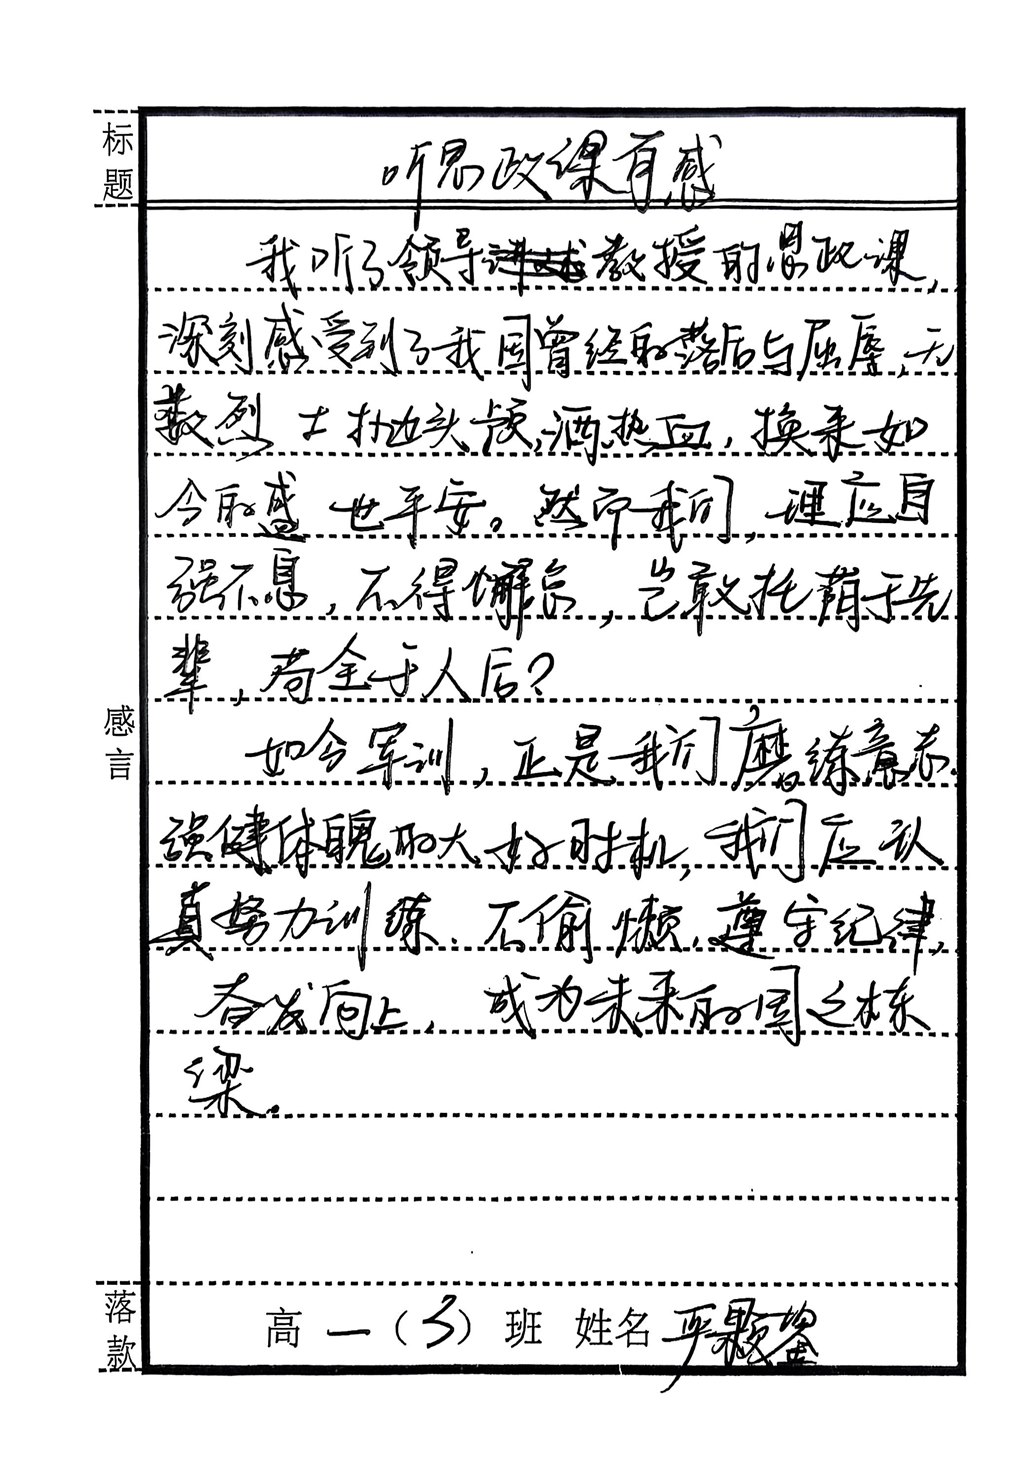 标题
听思政课有感
我听了领导教授的思政课，
深刻感受到了我国曾经的落后与屈辱，无
数烈士抛头颅，洒热血，换来如
今的盛世平安。然而我们，理应自
强不息，不得懈怠，岂敢托荫于先
辈，苟全于人后？
感言
如今军训，正是我们磨练意志、
强健体魄的大好时机，我们应认
真努力训练、不偷懒，遵守纪律，
奋发向上，成为未来的国之栋
梁。
落款
高一（3）班 姓名 严